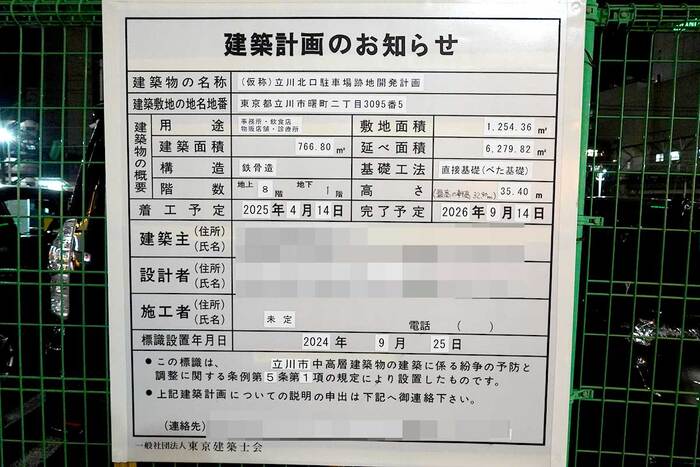 建築計画のお知らせ
建築物の名称 (仮称)立川北口駐車場跡地開発計画
建築敷地の地名地番 東京都立川市曙町二丁目3095番5
建築物の概要
用途 事務所・飲食店 物販店舗・診療所 敷地面積 1,254.36㎡
建築面積 766.80㎡ 延べ面積 6,279.82㎡
構造 鉄骨造 基礎工法 直接基礎(べた基礎)
階数 地上 8階 地下 1階 高さ 35.40m
着工予定 2025年4月14日 完了予定 2026年9月14日
建築主(住所)(氏名)
設計者(住所)(氏名)
施工者(住所)(氏名) 未定 電話 ( )
標識設置年月日 2024年 9月 25日
●この標識は、 立川市中高層建築物の建築に係る紛争の予防と
調整に関する条例第5条第1項の規定により設置したものです。
●上記建築計画についての説明の申出は下記へ御連絡下さい。
(連絡先)
一般社団法人 東京建築士会